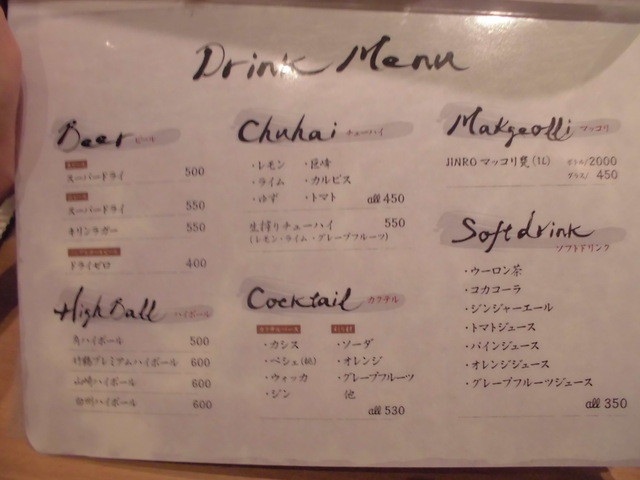 Drink Menu
Beer ビール
スーパードライ 500
スーパードライ 550
キリンラガー 550
ドライゼロ 400
High Ball ハイボール
角ハイボール 500
竹鶴プレミアムハイボール 600
山崎ハイボール 600
白州ハイボール 600
Chuhai チューハイ
・レモン ・巨峰
・ライム ・カルピス
・ゆず ・トマト all 450
生搾りチューハイ 550
(レモン・ライム・グレープフルーツ)
Cocktail カクテル
・カシス ・ソーダ
・ペシェ(桃) ・オレンジ
・ウォッカ ・グレープフルーツ
・ジン 他
all 530
Makgeolli マッコリ
JINRO マッコリ甕(1L) ボトル/2000
グラス/ 450
Soft drink
ソフトドリンク
・ウーロン茶
・コカコーラ
・ジンジャーエール
・トマトジュース
・パインジュース
・オレンジジュース
・グレープフルーツジュース
all 350